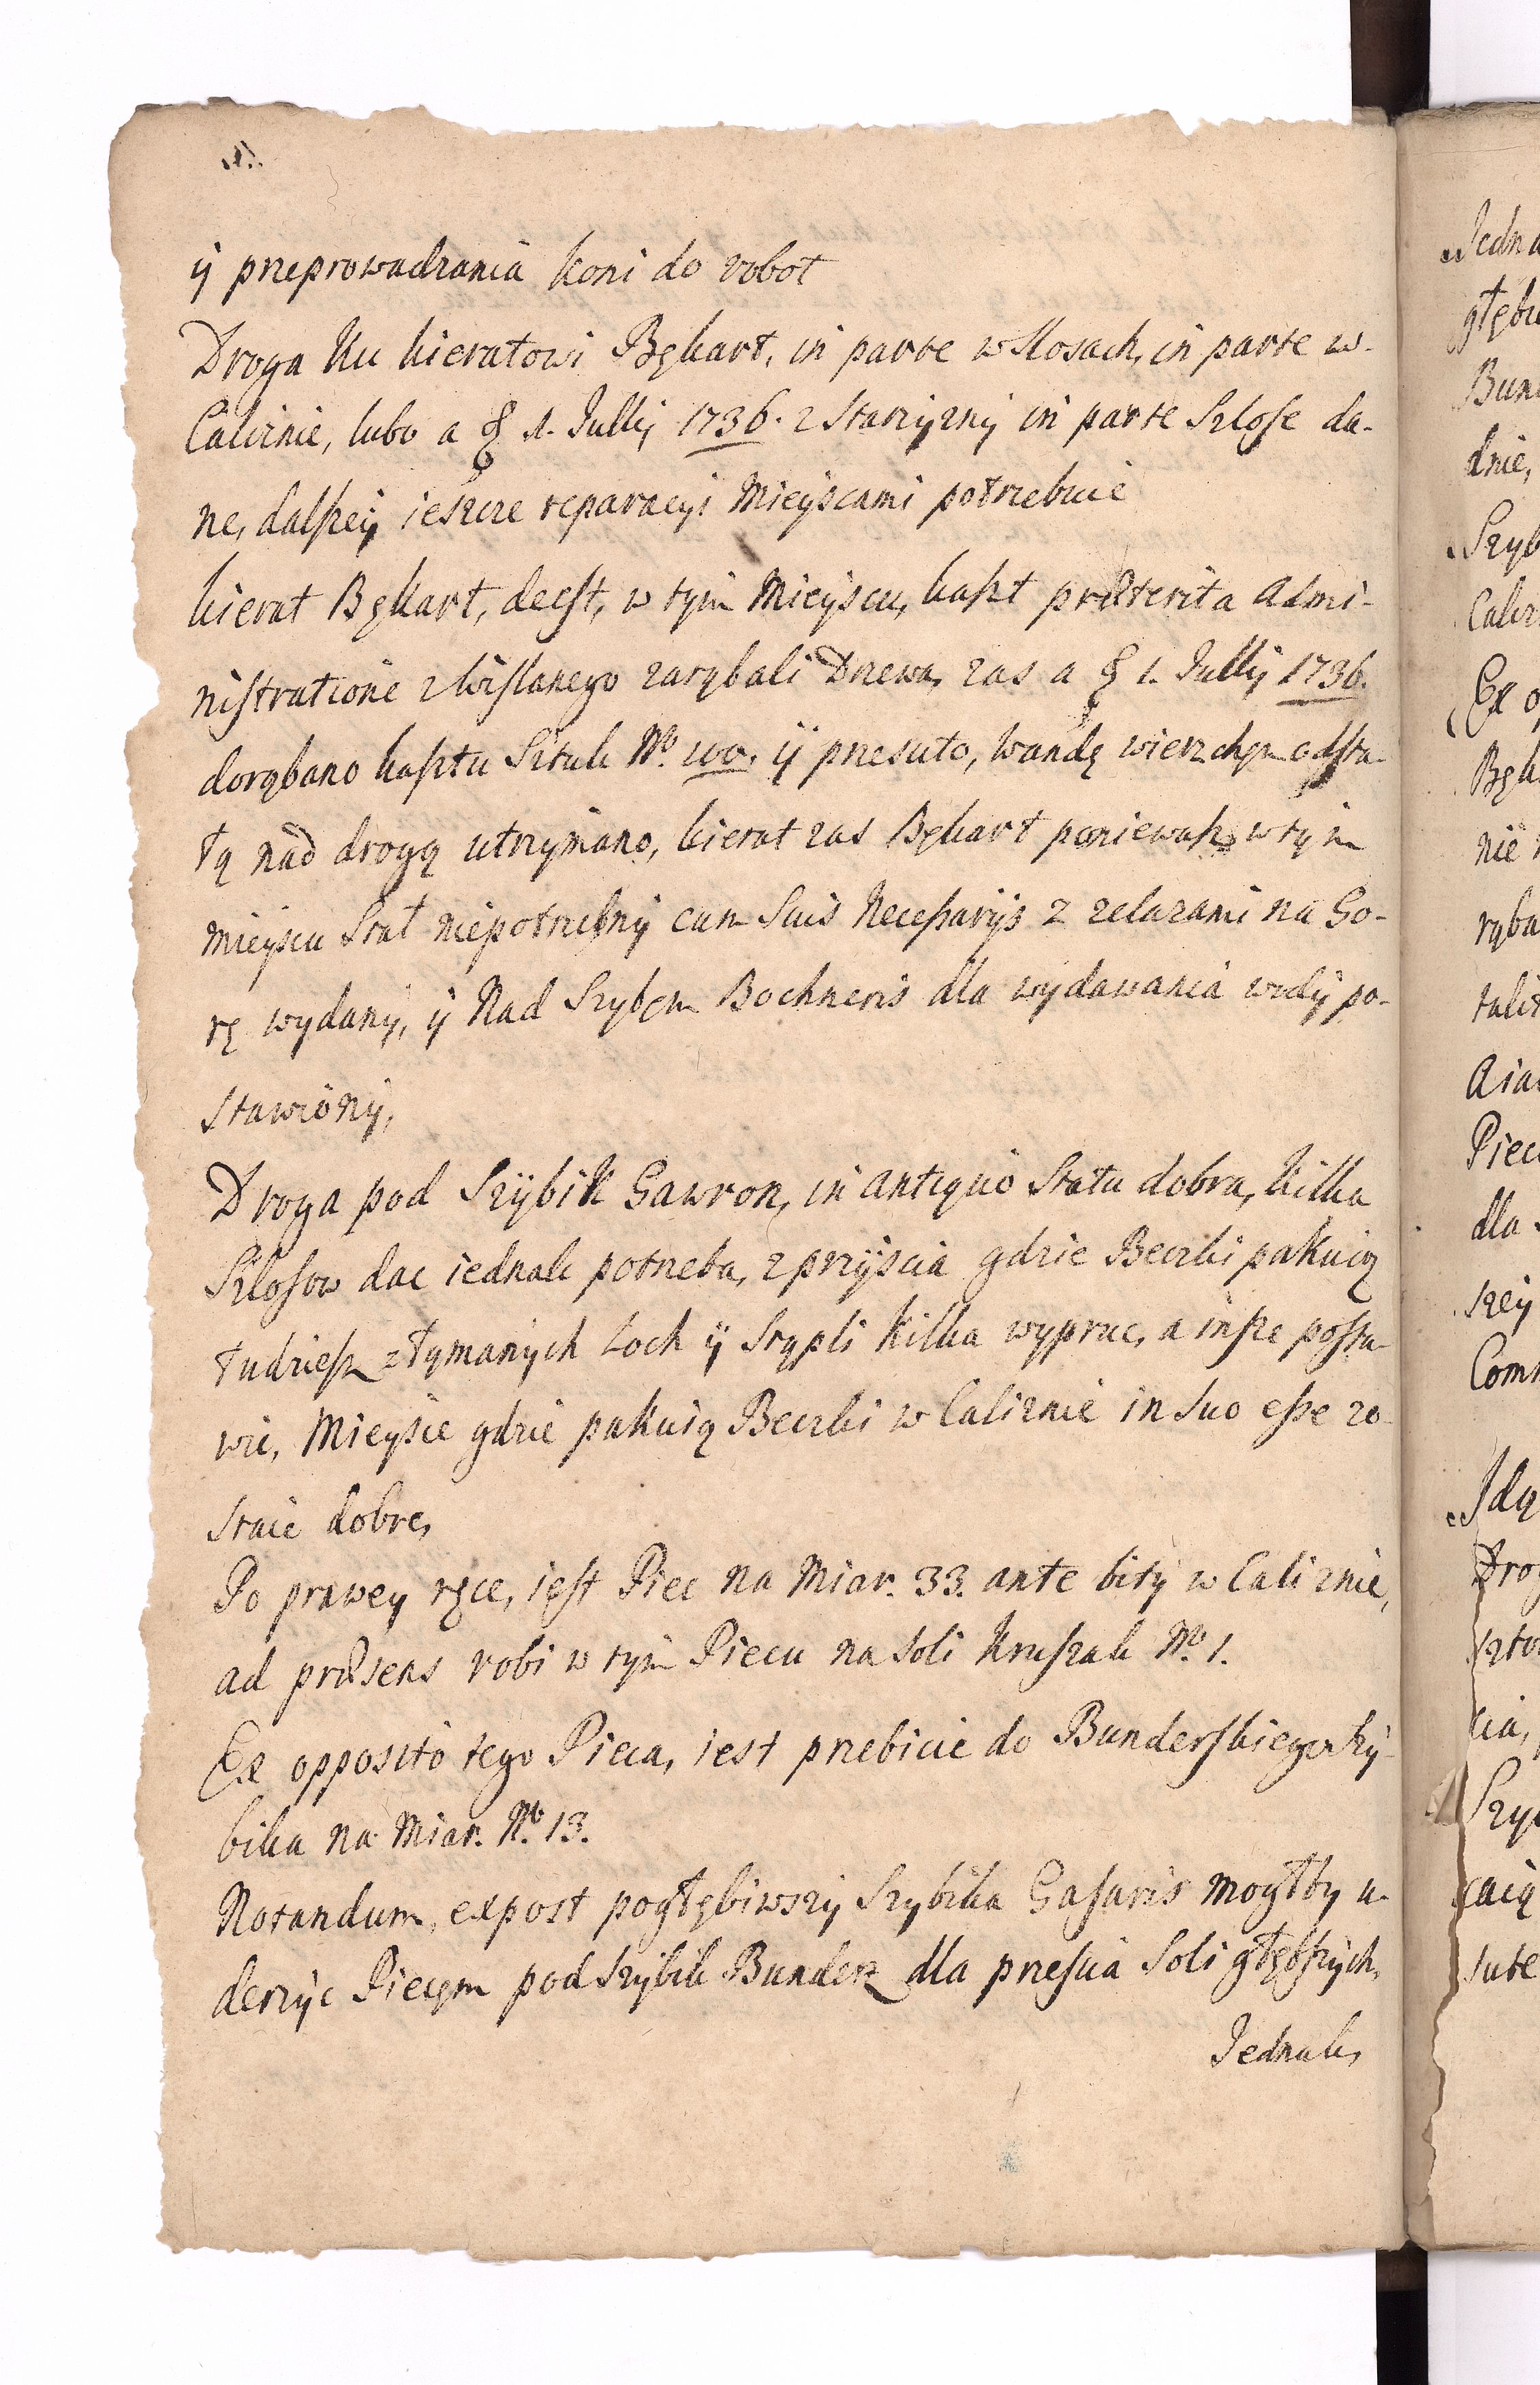 ÿ przeprowadzania koni do robot
Droga ku kieratowi Bękart, in parte w Klosach, in parte w-
Caliznie, lubo a 1. Jullij 1736. z Starzyzny in parte Szlose da-
ne, dalszey ieszcze reparacyi Mieyscami potrzebuie
kierat Bękart, deest, w tym Mieyscu, kaszt præterita Admi-
nistratione z Wislanego zarąbali Drzewa, zas a 1. Jullij 1736.
dorąbano kasztu Sztuk No. 100. ÿ przesuto, wandę wierzchęm odsta-
łą nad drogą utrzymano, kierat zas Bękart poniewasz w tym
mieyscu Stał niepotrzebny cum Suis Necessarijs z zelazami na Go-
rę wydany, ÿ Nad Szybęm Bochneris dla wydawania wody po-
stawiony,
Droga pod Szybik Gawron, in antiquo Statu dobra, kilka
Szlosow dac iednak potrzeba, z przyscia gdzie Beczki pakuią
tudziesz złymanych Loch ÿ Stępli kilka wypruc, a insze posta-
wic, Mieysce gdzie pakuią Beczki w Caliznie in suo esse zo-
staie dobre,
Po prawey ręce, iest Piec na Miar. 33. ante bity w Caliznie,
ad præsens robi w tym Piecu na soli Kruszak No. 1.
Ex opposito tego Pieca, iest przebicie do Bunderskiego Szy-
bika na Miar. No. 13.
Notandum, expost pogłębiwszy Szybika Gasaris mogłby u-
derzyc Piecęm pod Szybik Bunder dla przescia Soli głębszych,
Jednak,